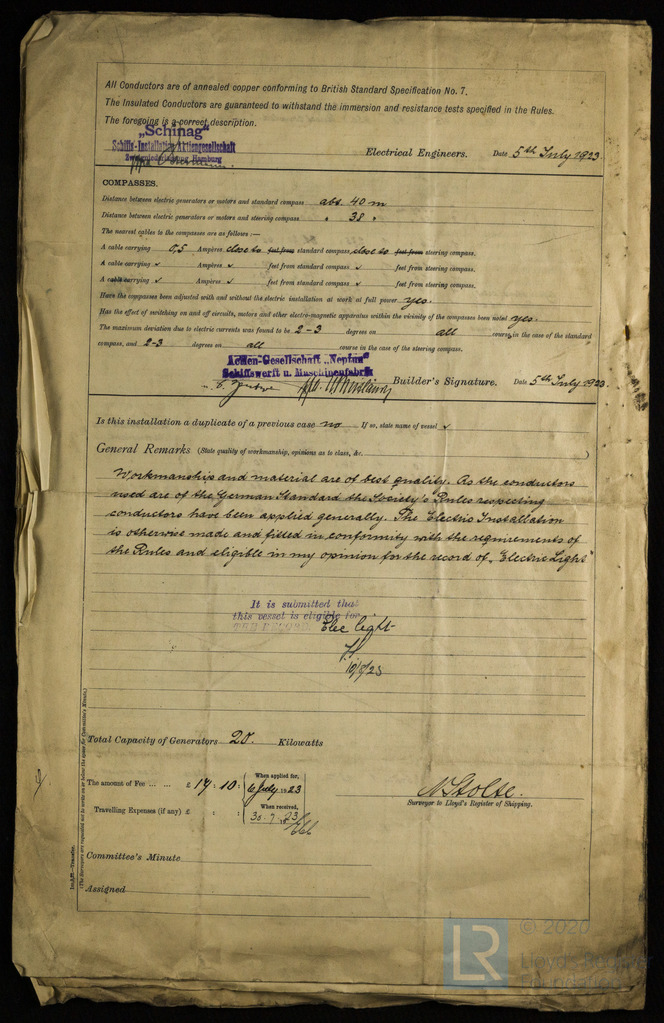 All Conductors are of annealed copper conforming to British Standard Specification No. 7.
The Insulated Conductors are guaranteed to withstand the immersion and resistance tests specified in the Rules.
The foregoing is a correct description.
„Schinag"
Schiffs-Installation Aktiengesellschaft
Zweigniederlassung Hamburg
Electrical Engineers. Date 5th July 1923
COMPASSES.
Distance between electric generators or motors and standard compass abt. 40 m
Distance between electric generators or motors and steering compass " 38 "
The nearest cables to the compasses are as follows :—
A cable carrying 0,5 Ampères close to feet from standard compass, close to feet from steering compass.
A cable carrying ✓ Ampères ✓ feet from standard compass ✓ feet from steering compass.
A cable carrying ✓ Ampères ✓ feet from standard compass ✓ feet from steering compass.
Have the compasses been adjusted with and without the electric installation at work at full power yes.
Has the effect of switching on and off circuits, motors and other electro-magnetic apparatus within the vicinity of the compasses been noted yes.
The maximum deviation due to electric currents was found to be 2-3 degrees on all course, in the case of the standard
compass, and 2-3 degrees on all course in the case of the steering compass.
Actien-Gesellschaft „Neptun"
Schiffswerft u. Maschinenfabrik
Builder's Signature. Date 5th July 1923
Is this installation a duplicate of a previous case no If so, state name of vessel ✓
General Remarks (State quality of workmanship, opinions as to class, &c.
Workmanship and material are of best quality. As the conductors
used are of the German Standard the Society's Rules respecting
conductors have been applied generally. The Electric Installation
is otherwise made and fitted in conformity with the requirements of
the Rules and eligible in my opinion for the record of „Electric Light"
It is submitted that
this vessel is eligible for
THE RECORD Elec light
10/8/23
Total Capacity of Generators 20. Kilowatts
The amount of Fee ... ... £ 17 : 10 : When applied for, 6 July 1923
Travelling Expenses (if any) £ : : When received, 30.7.1923
N Stolte.
Surveyor to Lloyd's Register of Shipping.
Committee's Minute
Assigned
Im.&ff.—Transfer.
(The Surveyors are requested not to write on or below the space for Committee's Minute.)
LR
© 2020
Lloyd's Register
Foundation